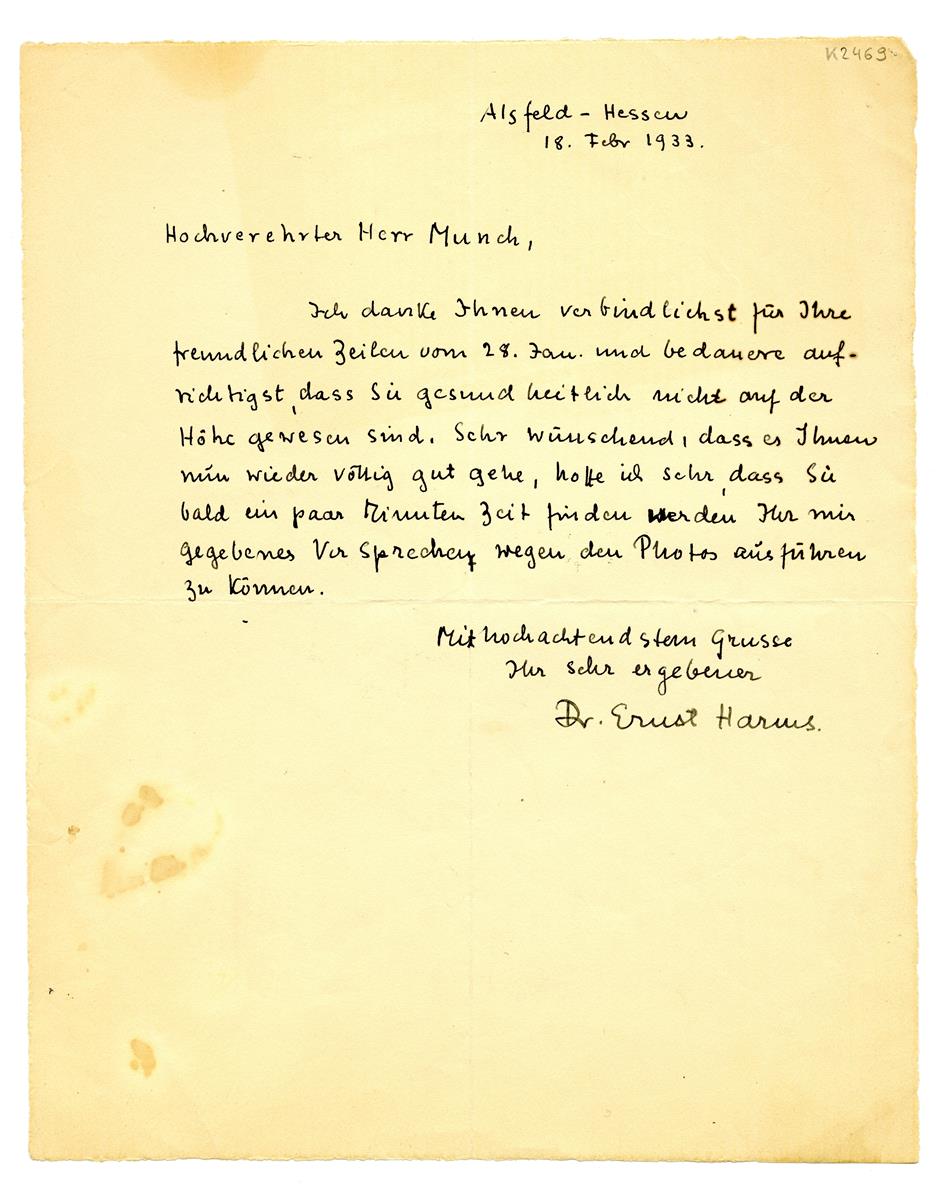 K2469
Alsfeld - Hessen
18. Febr 1933.
Hochverehrter Herr Munch,
Ich danke Ihnen verbindlichst für Ihre
freundlichen Zeilen vom 28. Jan. und bedauere auf-
richtigst, dass Sie gesundheitlich nicht auf der
Höhe gewesen sind. Sehr wünschend, dass es Ihnen
nun wieder völlig gut gehe, hoffe ich sehr, dass Sie
bald ein paar Minuten Zeit finden werden Ihr mir
gegebenes Versprechen wegen den Photos ausführen
zu können.
Mit hochachtendstem Grusse
Ihr sehr ergebener
Dr. Ernst Harms.